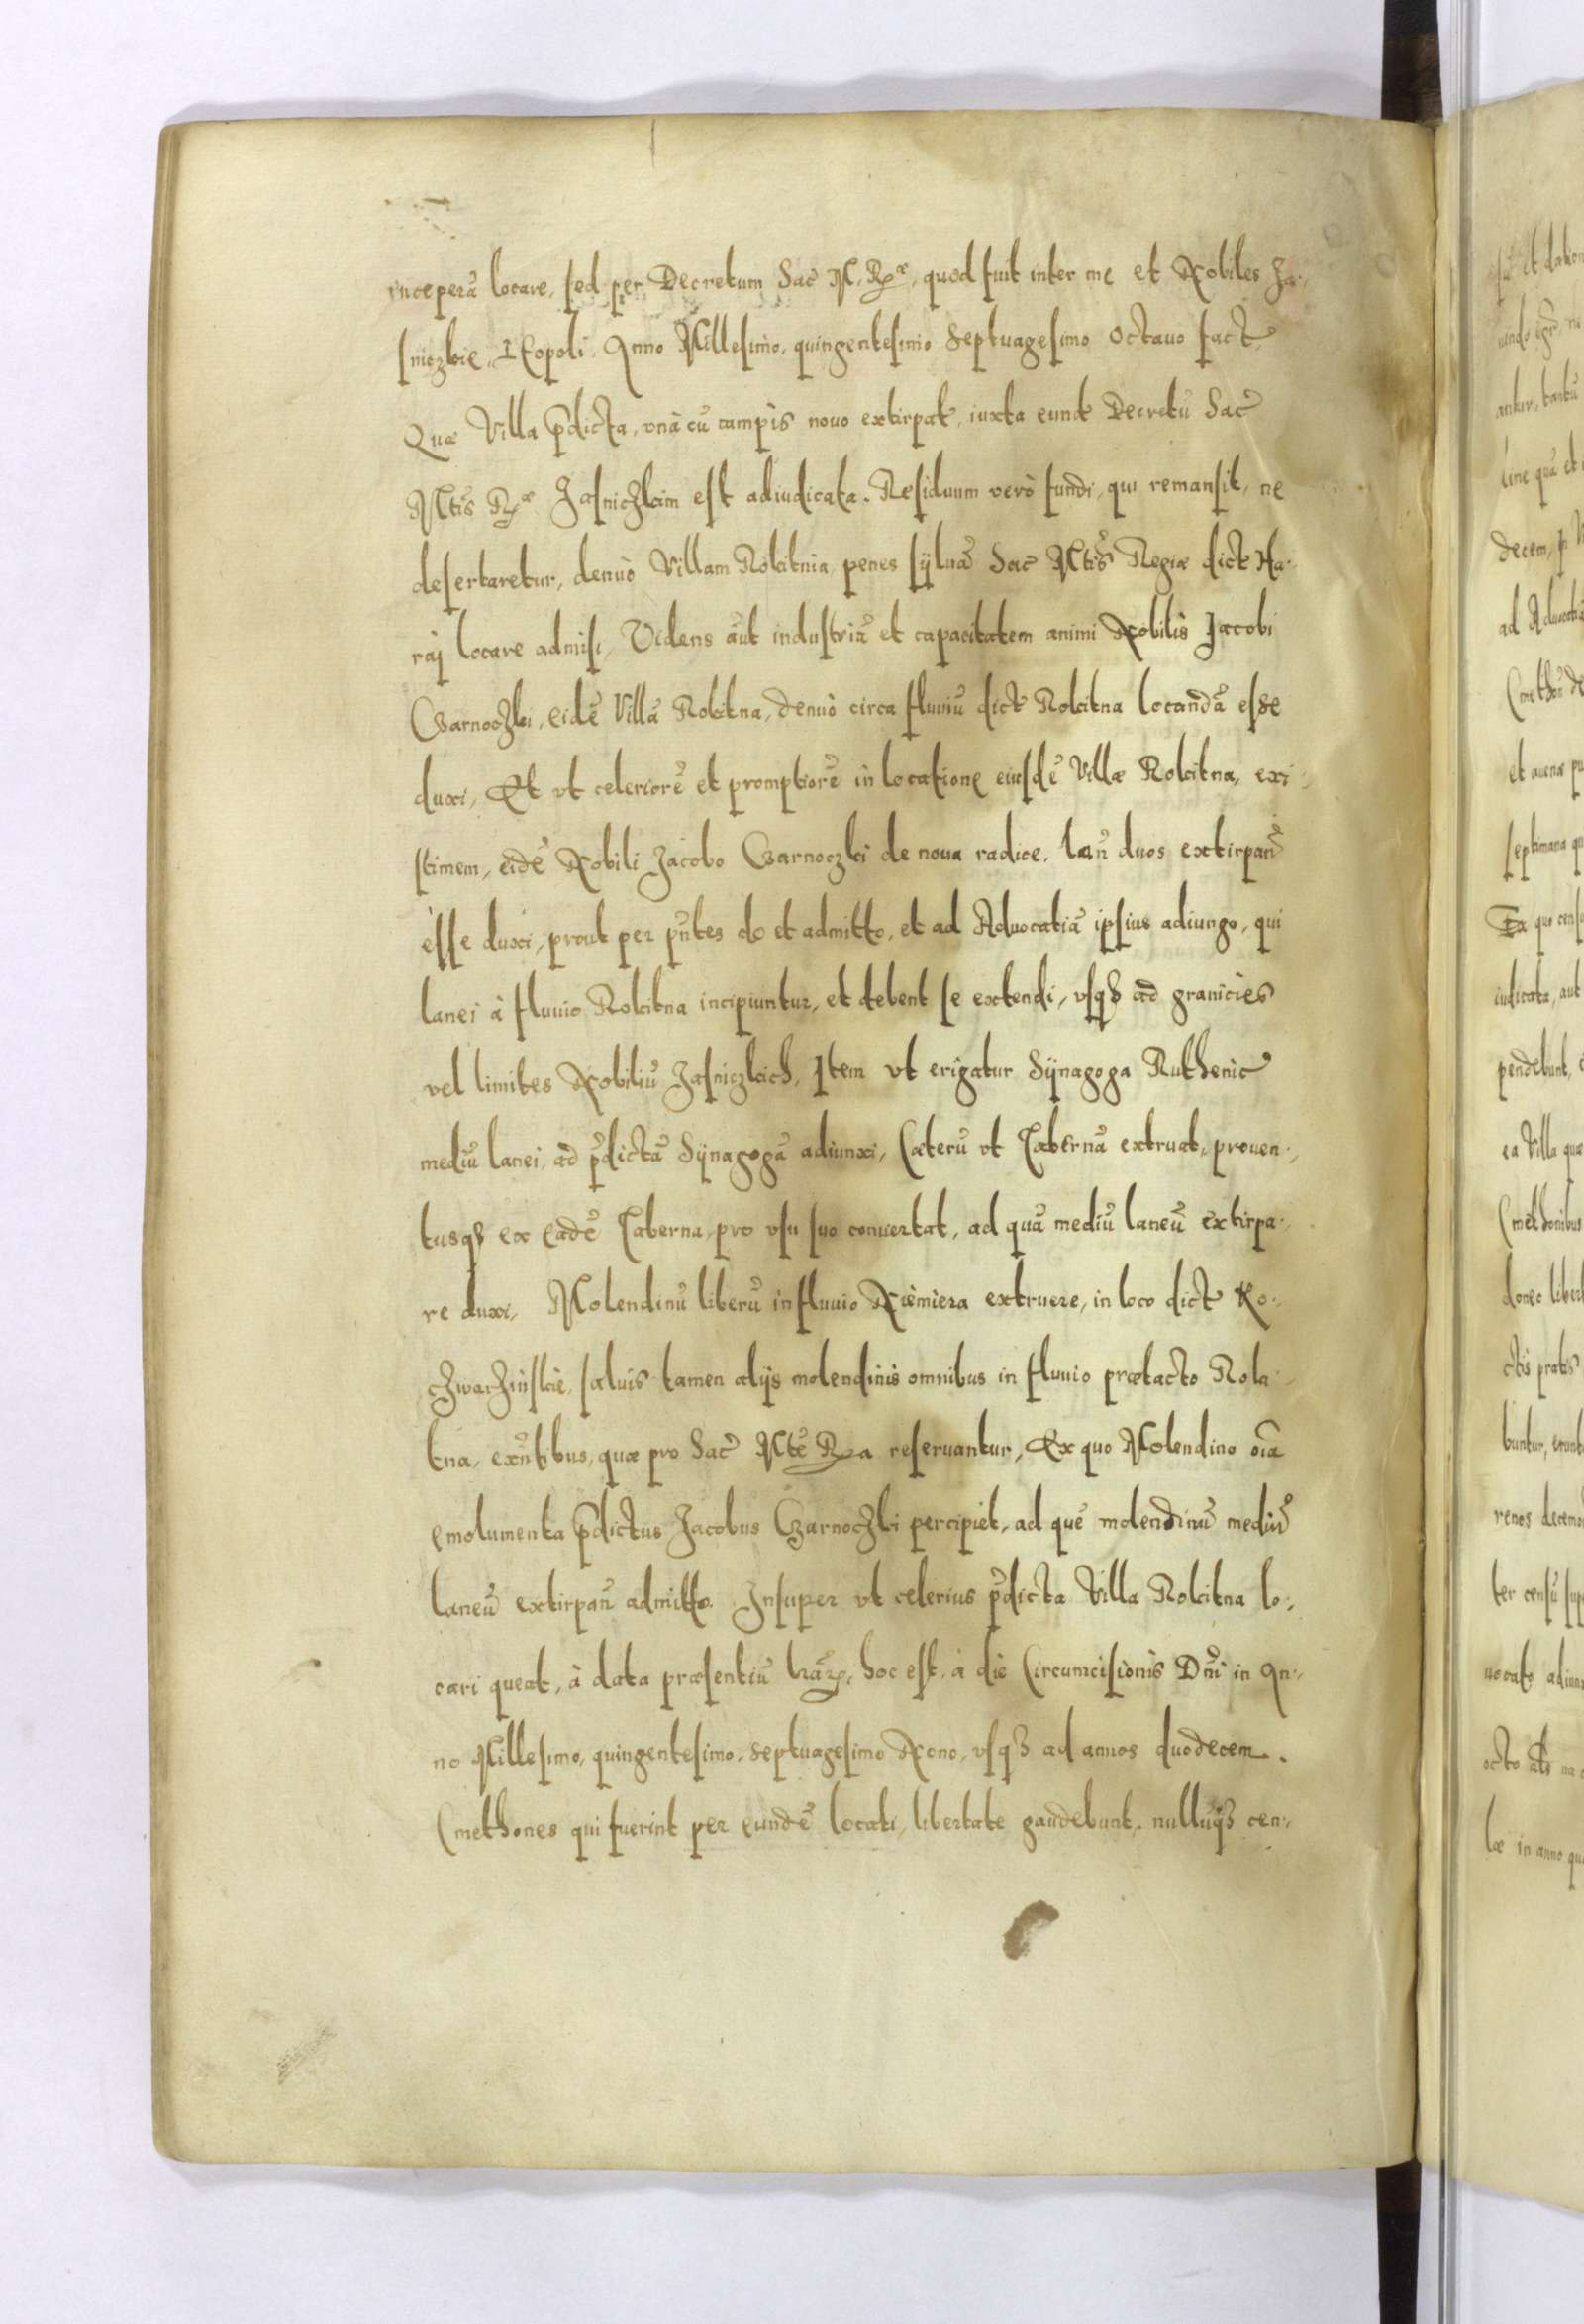 inceperã locare, sed per Decretum Sac̃ M. Rᵉ, quod fuit inter me et Nobiles Ja-
sniczkie, Leopoli, Anno Millesimo, quingentesimo Septuagesimo octauo fact̃
Quæ Villa p̃dicta, vnà cũ campis nouo extirpat̃, iuxta eund̃ Decretũ Sac̃
Mtis Rᵉ Jasniczkim est adiudicata. Residuum verò fundi, qui remansit, ne
desertaretur, denuò Villam Rokitnia penes sÿluã Sac̃ Mtis̃ Regiæ dict̃ Ha-
raj locare admisi, Videns aũt industriã et capacitatem animi Nobilis Jacobi
Czarnoczki, eidẽ Villã Rokitna, denuò circa fluuiũ dict̃ Rokitna locandã esse
duxi, Et vt celeriorẽ et promptiorẽ in locatione eiusdẽ Villæ Rokitna, exi-
stimem, eidẽ Nobili Jacobo Czarnoczki de noua radice, lañ duos extirpañ
esse duxi, prout per pñtes do et admitto, et ad Aduocatiã ipsius adiungo, qui
lanei à fluuio Rokitna incipiuntur, et debent se extendi, vsqȝ ad granicies
vel limites Nobiliũ Jasniczkich, Item vt erigatur Sÿnagoga Ruthenic̃
mediũ lanei, ad p̃dictã Sÿnagogã adiunxi, Cæterũ vt Tabernã extruat, prouen-
tusqȝ ex eadẽ Taberna, pro vsu suo conuertat, ad quã mediũ laneũ extirpa-
re duxi, Molendinũ liberũ in fluuio Niemiera extruere, in loco dict̃ Ko-
chwarzinskie, saluis tamen alijs molendinis omnibus in fluuio prætacto Roki-
tna, exñtibus, quæ pro Sac̃ Mtẽ Ra reseruantur, Ex quo Molendino oĩa
emolumenta p̃dictus Jacobus Czarnoczki percipiet, ad quẽ molendinũ mediũ
laneũ extirpañ admitto. Insuper vt celerius p̃dicta Villa Rokitna lo-
cari queat, à data præsentiũ lrãꝝ, hoc est, à die Circumcisionis Dñi in An-
no Millesimo, quingentesimo, septuagesimo Nono, vsqȝ ad annos duodecem.
Cmethones qui fuerint per eundẽ locati, libertate gaudebunt, nullũqȝ cen-